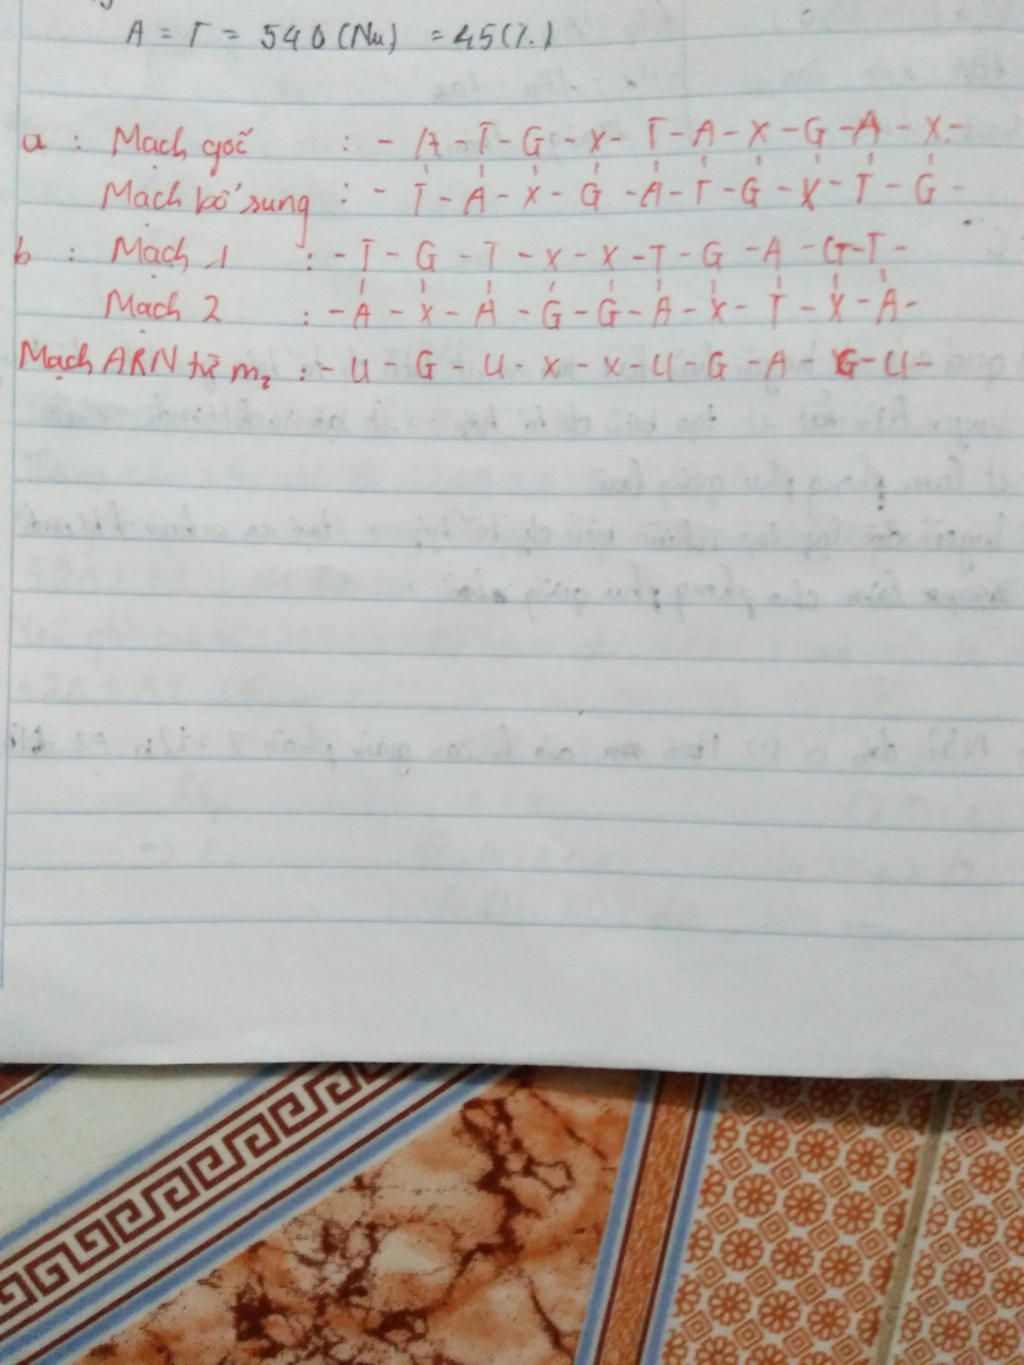 A = T = 540 (Nu) = 45(%)
a : Mạch gốc : - A - T - G - X - T - A - X - G - A - X -
Mạch bổ sung : - T - A - X - G - A - T - G - X - T - G -
b : Mạch 1 : - T - G - T - X - X - T - G - A - G - T -
Mạch 2 : - A - X - A - G - G - A - X - T - X - A -
Mạch ARN từ m₂ : - U - G - U - X - X - U - G - A - G - U -